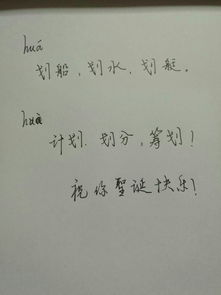 huá
划船，划水，划艇。
huà
计划．划分，筹划！
祝你聖诞快乐！